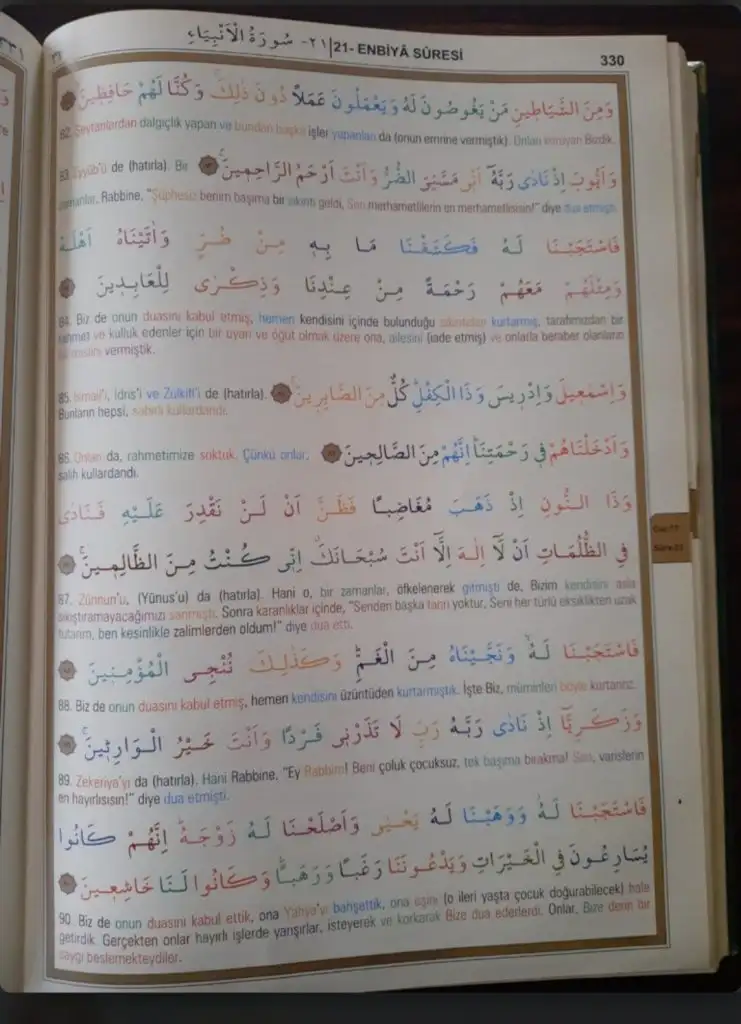 ٢١- سُورَةُ الْاَنْبِيَاءِ | 21- ENBİYÂ SÛRESİ 330
وَمِنَ الشَّيَاطٖينِ مَنْ يَغُوصُونَ لَهُ وَيَعْمَلُونَ عَمَلاً دُونَ ذٰلِكَۚ وَكُنَّا لَهُمْ حَافِظٖينَۙ
82. Şeytanlardan dalgıçlık yapan ve bundan başka işler yapanları da (onun emrine vermiştik). Onları koruyan Bizdik.
وَاَيُّوبَ اِذْ نَادٰى رَبَّهُٓ اَنّٖي مَسَّنِيَ الضُّرُّ وَاَنْتَ اَرْحَمُ الرَّاحِمٖينَۚ
83. Eyyûb'ü de (hatırla). Bir
zamanlar, Rabbine, "Şüphesiz benim başıma bir sıkıntı geldi, Sen merhametlilerin en merhametlisisin!" diye dua etmişti.
فَاسْتَجَبْنَا لَهُ فَكَشَفْنَا مَا بِهٖ مِنْ ضُرٍّ وَاٰتَيْنَاهُ اَهْلَهُ
وَمِثْلَهُمْ مَعَهُمْ رَحْمَةً مِنْ عِنْدِنَا وَذِكْرٰى لِلْعَابِدٖينَ
84. Biz de onun duasını kabul etmiş, hemen kendisini içinde bulunduğu sıkıntıdan kurtarmış, tarafımızdan bir
rahmet ve kulluk edenler için bir uyarı ve öğüt olmak üzere ona, ailesini (iade etmiş) ve onlarla beraber olanların
vermiştik.
وَاِسْمٰعٖيلَ وَاِدْرٖيسَ وَذَا الْكِفْلِۜ كُلٌّ مِنَ الصَّابِرٖينَۚ
85. İsmail'i, İdris'i ve Zülkifl'i de (hatırla).
Bunların hepsi, sabırlı kullardandı.
وَاَدْخَلْنَاهُمْ فٖي رَحْمَتِنَاۜ اِنَّهُمْ مِنَ الصَّالِحٖينَ
86. Onları da, rahmetimize soktuk. Çünkü onlar,
salih kullardandı.
وَذَا النُّونِ اِذْ ذَهَبَ مُغَاضِبًا فَظَنَّ اَنْ لَنْ نَقْدِرَ عَلَيْهِ فَنَادٰى
فِي الظُّلُمَاتِ اَنْ لَٓا اِلٰهَ اِلَّٓا اَنْتَ سُبْحَانَكَۗ اِنّٖي كُنْتُ مِنَ الظَّالِمٖينَۚ
87. Zünnun'u, (Yûnus'u) da (hatırla). Hani o, bir zamanlar, öfkelenerek gitmişti de, Bizim kendisini asla
sıkıştıramayacağımızı sanmıştı. Sonra karanlıklar içinde, "Senden başka tanrı yoktur, Seni her türlü eksiklikten uzak
tutarım, ben kesinlikle zalimlerden oldum!" diye dua etti.
فَاسْتَجَبْنَا لَهُۙ وَنَجَّيْنَاهُ مِنَ الْغَمِّۜ وَكَذٰلِكَ نُنْجِي الْمُؤْمِنٖينَ
88. Biz de onun duasını kabul etmiş, hemen kendisini üzüntüden kurtarmıştık. İşte Biz, müminleri böyle kurtarırız.
وَزَكَرِيَّٓا اِذْ نَادٰى رَبَّهُ رَبِّ لَا تَذَرْنٖي فَرْدًا وَاَنْتَ خَيْرُ الْوَارِثٖينَۚ
89. Zekeriya'yı da (hatırla). Hani Rabbine, "Ey Rabbim! Beni çoluk çocuksuz, tek başıma bırakma! Sen, varislerin
en hayırlısısın!" diye dua etmişti.
فَاسْتَجَبْنَا لَهُۘ وَوَهَبْنَا لَهُ يَحْيٰى وَاَصْلَحْنَا لَهُ زَوْجَهُۜ اِنَّهُمْ كَانُوا
يُسَارِعُونَ فِي الْخَيْرَاتِ وَيَدْعُونَنَا رَغَبًا وَرَهَبًاۜ وَكَانُوا لَنَا خَاشِعٖينَ
90. Biz de onun duasını kabul ettik, ona Yahya'yı bahşettik, ona eşini (o ileri yaşta çocuk doğurabilecek) hale
getirdik. Gerçekten onlar hayırlı işlerde yarışırlar, isteyerek ve korkarak Bize dua ederlerdi. Onlar, Bize derin bir
saygı beslemekteydiler.